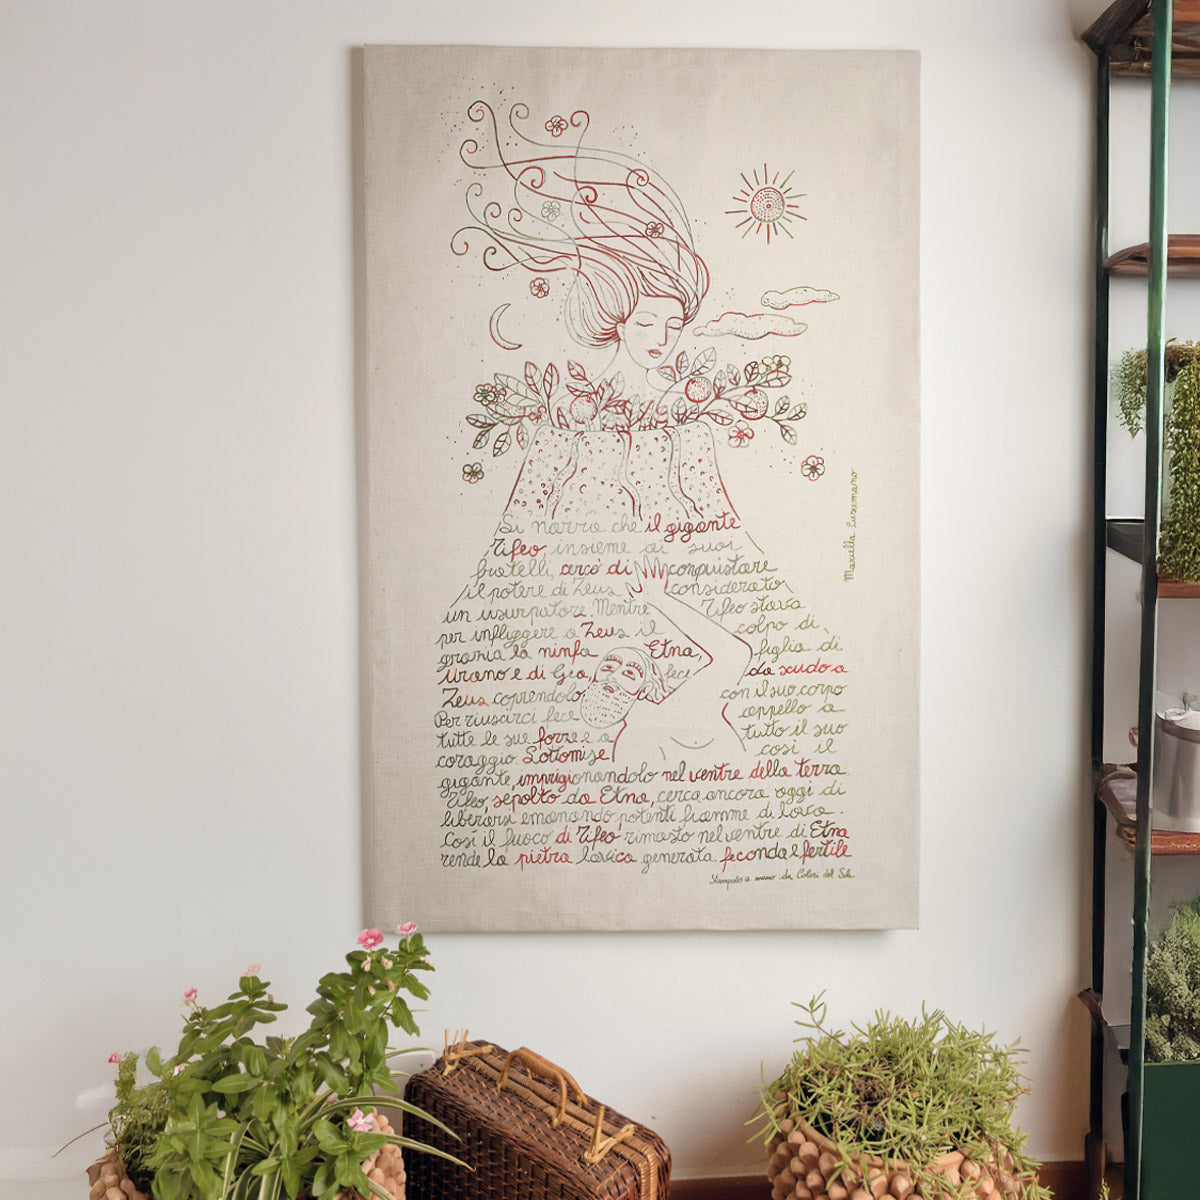 Si narra che il gigante
Tifeo, insieme ai suoi
fratelli, cercò di conquistare
il potere di Zeus considerato
un usurpatore. Mentre Tifeo stava
per infliggere a Zeus il colpo di
grazia la ninfa Etna, figlia di
Urano e di Gea, fece da scudo a
Zeus coprendolo con il suo corpo
Per riuscirci fece appello a
tutte le sue forze e a tutto il suo
coraggio. Sottomise così il
gigante, imprigionandolo nel ventre della terra.
Tifeo, sepolto da Etna, cerca ancora oggi di
liberarsi emanando potenti fiamme di lava.
Così il fuoco di Tifeo rimasto nel ventre di Etna
rende la pietra lavica generata feconda e fertile
Stampato a mano da Colori del Sole
Mariella Lusumano